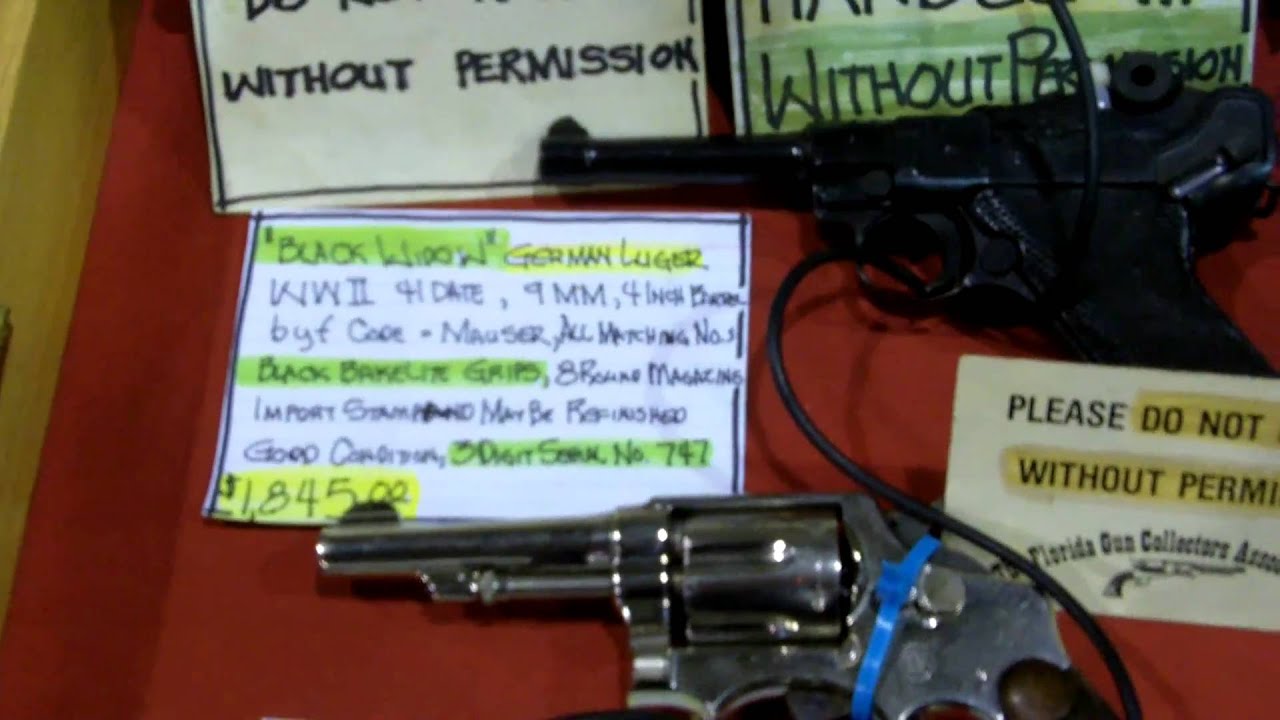 DO NOT
WITHOUT PERMISSION
HANDLE
WITHOUT PERMISSION
"BLACK WIDOW" GERMAN LUGER
WWII 41 DATE, 9MM, 4 INCH BARREL
byf CODE - MAUSER, ALL MATCHING NO.S
BLACK BAKELITE GRIPS, 8 ROUND MAGAZINE
IMPORT STAMP AND MAY BE REFINISHED
GOOD CONDITION, 3 DIGIT SERIAL NO. 747
$1,845.00
PLEASE DO NOT
WITHOUT PERMI
Florida Gun Collectors Assoc